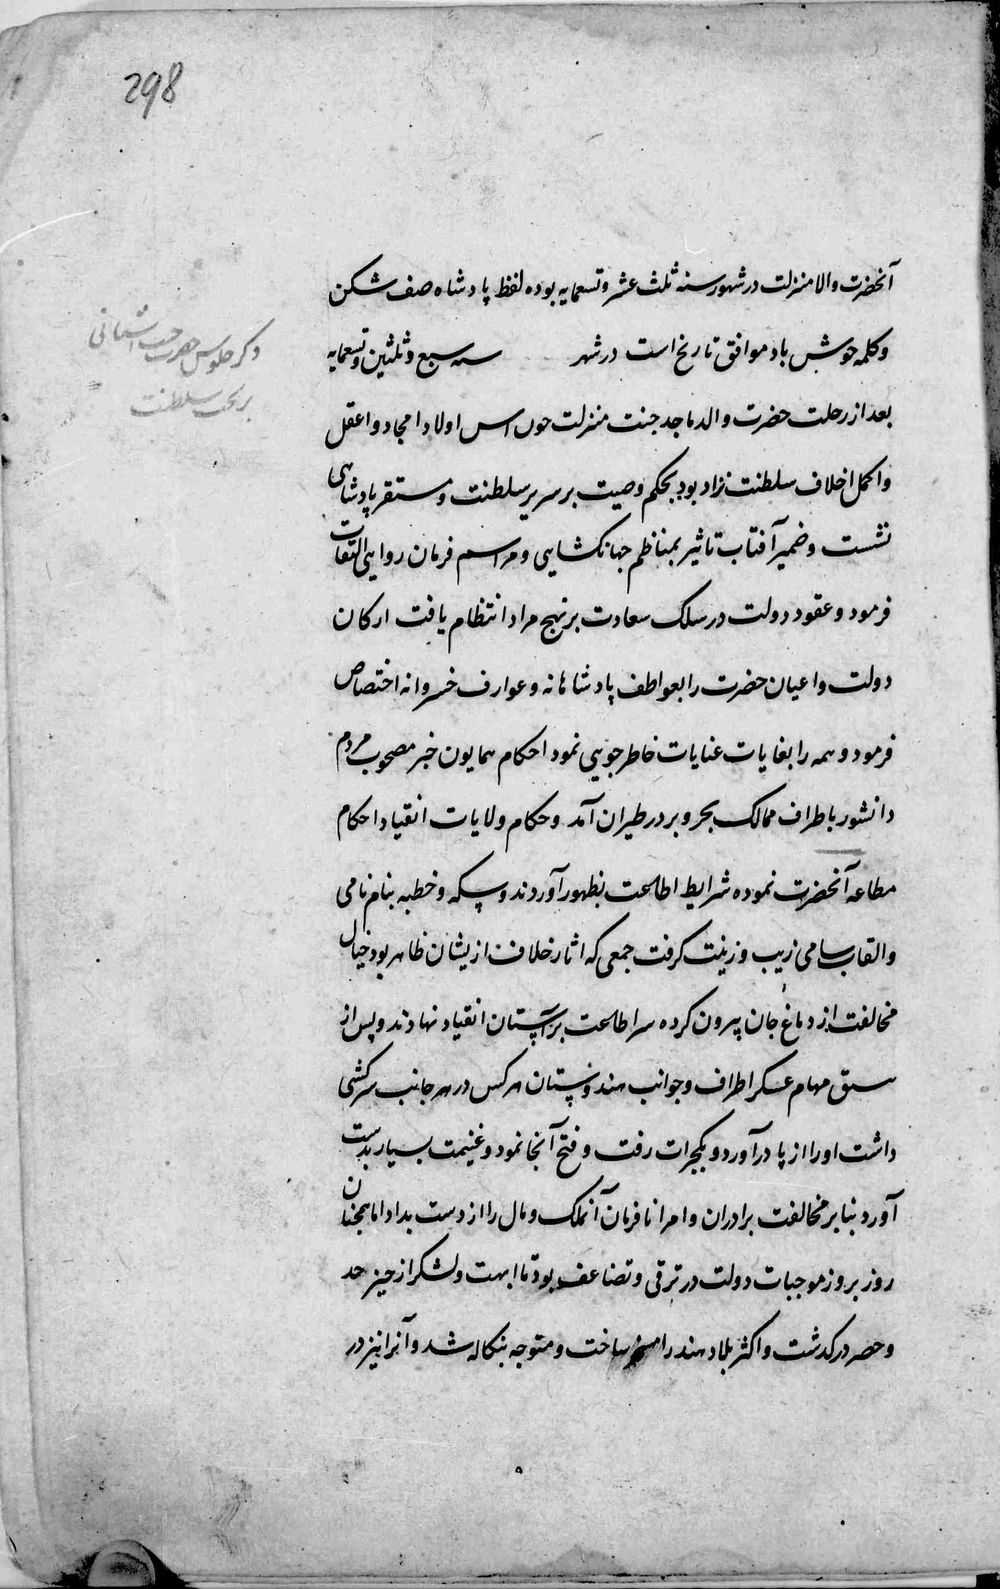 298
آنحضرت والا منزلت در شهور سنه ثلث عشر و تسعمایه بوده لفظ پادشاه صف شکن
و کلمه خوش باد موافق تاریخ است در شهر سنه سبع و ثلثین و تسعمایه
ذکر جلوس حضرت جنت آشیانی
بر تخت سلطنت
بعد از رحلت حضرت والد ماجد جنت منزلت چون اسن اولاد امجاد و اعقل
و اکمل اخلاف سلطنت نژاد بود بحکم وصیت بر سریر سلطنت و مستقر پادشاهی
نشست و ضمیر آفتاب تاثیر بمناظم جهانکشایی و مراسم فرمان روایی التفات
فرمود و عقود دولت در سلک سعادت بر نهج مراد انتظام یافت ارکان
دولت و اعیان حضرت را بعواطف پادشاهانه و عوارف خسروانه اختصاص
فرمود و همه را بغایات عنایات خاطر جویی نمود احکام همایون خبر مصحوب مردم
دانشور باطراف ممالک بحر و بر در طیران آمد و حکام ولایات انقیاد احکام
مطاعه آنحضرت نموده شرایط اطاعت بظهور آوردند و سکه و خطبه بنام نامی
و القاب سامی زیب و زینت کرفت جمعی که اثار خلاف ازیشان ظاهر بود خیال
مخالفت از دماغ جان بیرون کرده سر اطاعت بر آستان انقیاد نهادند و پس از
نسق مهام عسکر اطراف و جوانب هندوستان هرکس در هر جانب سرکشی
داشت او را از پا در آورد و بکجرات رفت و فتح آنجا نمود و غنیمت بسیار بدست
آورد بنا بر مخالفت برادران و امرا نافرمان آنملک و مال را از دست بداد اما همچنان
روز بروز موجبات دولت در ترقی و تضاعف بود تا ابهت و لشکر از حیز حد
و حصر درکذشت و اکثر بلاد هند را مسخر ساخت و متوجه بنکاله شد و آنرا نیز در